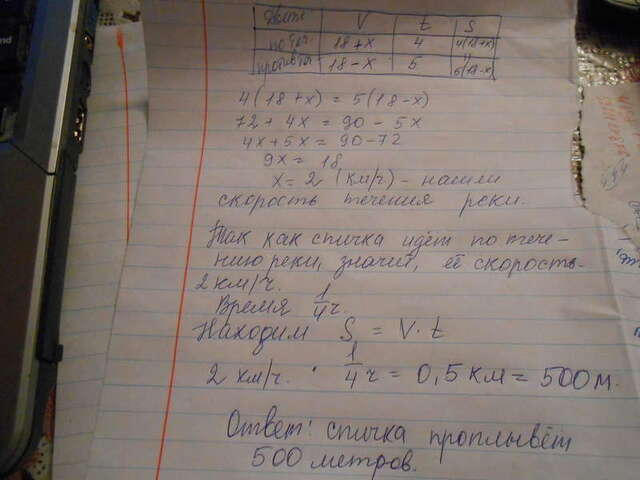 V t S
по теч. 18+x 4 4(18+x)
против теч. 18-x 5 5(18-x)
4(18+x) = 5(18-x)
72 + 4x = 90 - 5x
4x+5x = 90-72
9x = 18
x = 2 (км/ч) - нашли
скорость течения реки.
Так как спичка идёт по тече-
нию реки, значит, её скорость-
2 км/ч.
Время 1/4 ч.
Находим S = V·t
2 км/ч. · 1/4 ч = 0,5 км = 500 м.
Ответ: спичка проплывёт
500 метров.